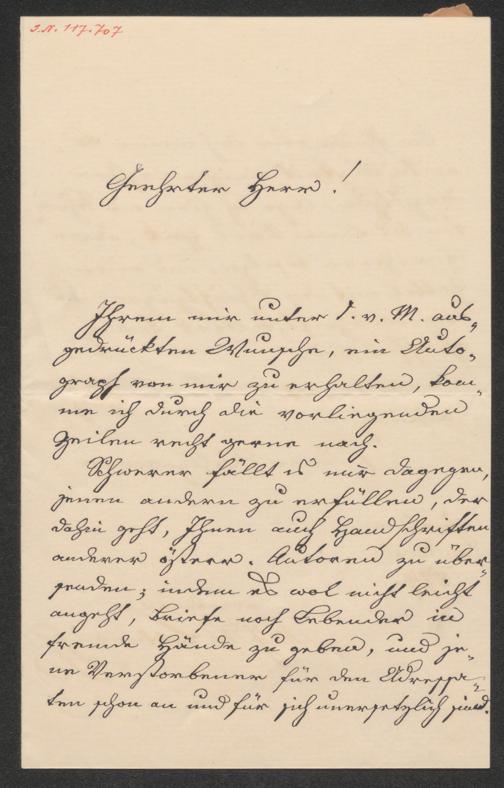 I.N. 117.707
Geehrter Herr!
Ihrem mir unter 1. v. M. aus-
gedrückten Wunsche, ein Auto-
graph von mir zu erhalten, kom-
me ich durch die vorliegenden
Zeilen recht gerne nach.
Schwerer fällt es mir dagegen,
jenen andern zu erfüllen, der
dahin geht, Ihnen auch Handschriften
anderer österr. Autoren zu über-
senden; indem es wol nicht leicht
angeht, Briefe noch Lebender in
fremde Hände zu geben, und je-
ne Verstorbener für den Adressa-
ten schon an und für sich unersetzlich sind.